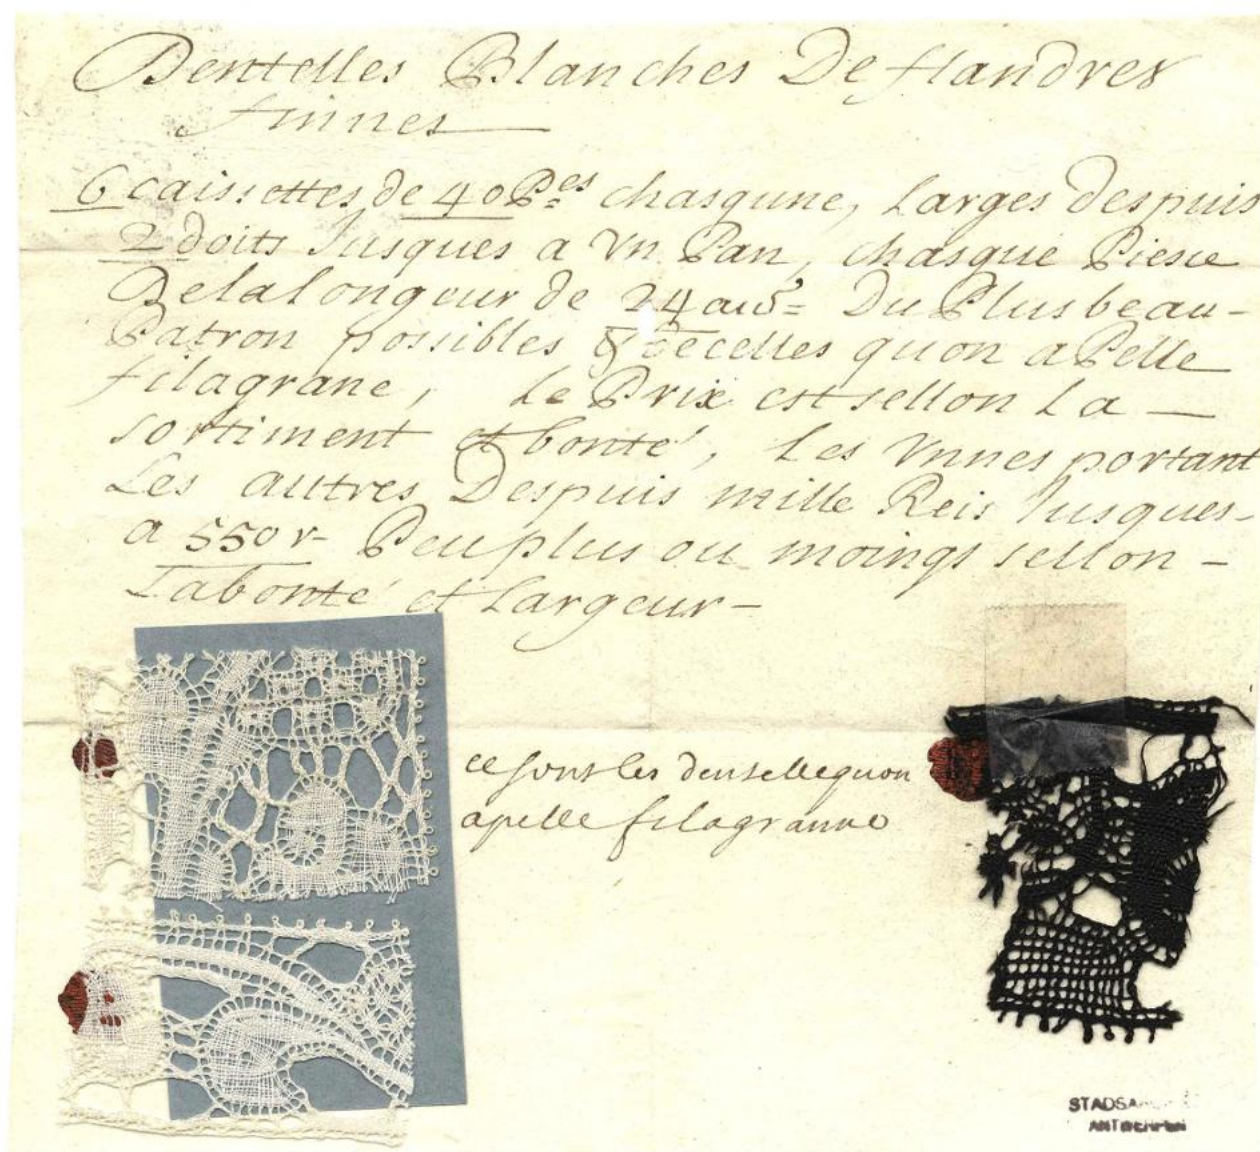 Dentelles Blanches De flandres
finnes
6 caissettes de 40 P.es chasqune, Larges despuis
2 doits Jusques a Vn Pan, chasque Piesce
De la longeur de 24 au.s Du Plus beau
Patron possibles & de celles quon a Pelle
filagrane, Le Prix est sellon La
sortiment et bonté, Les Vnnes portant
Les autres Despuis mille Reis Jusques
a 550 r Peu plus ou moings sellon
La bonté et Largeur
ce sont les dentelle quon
apelle filagranne
ANTWERPEN